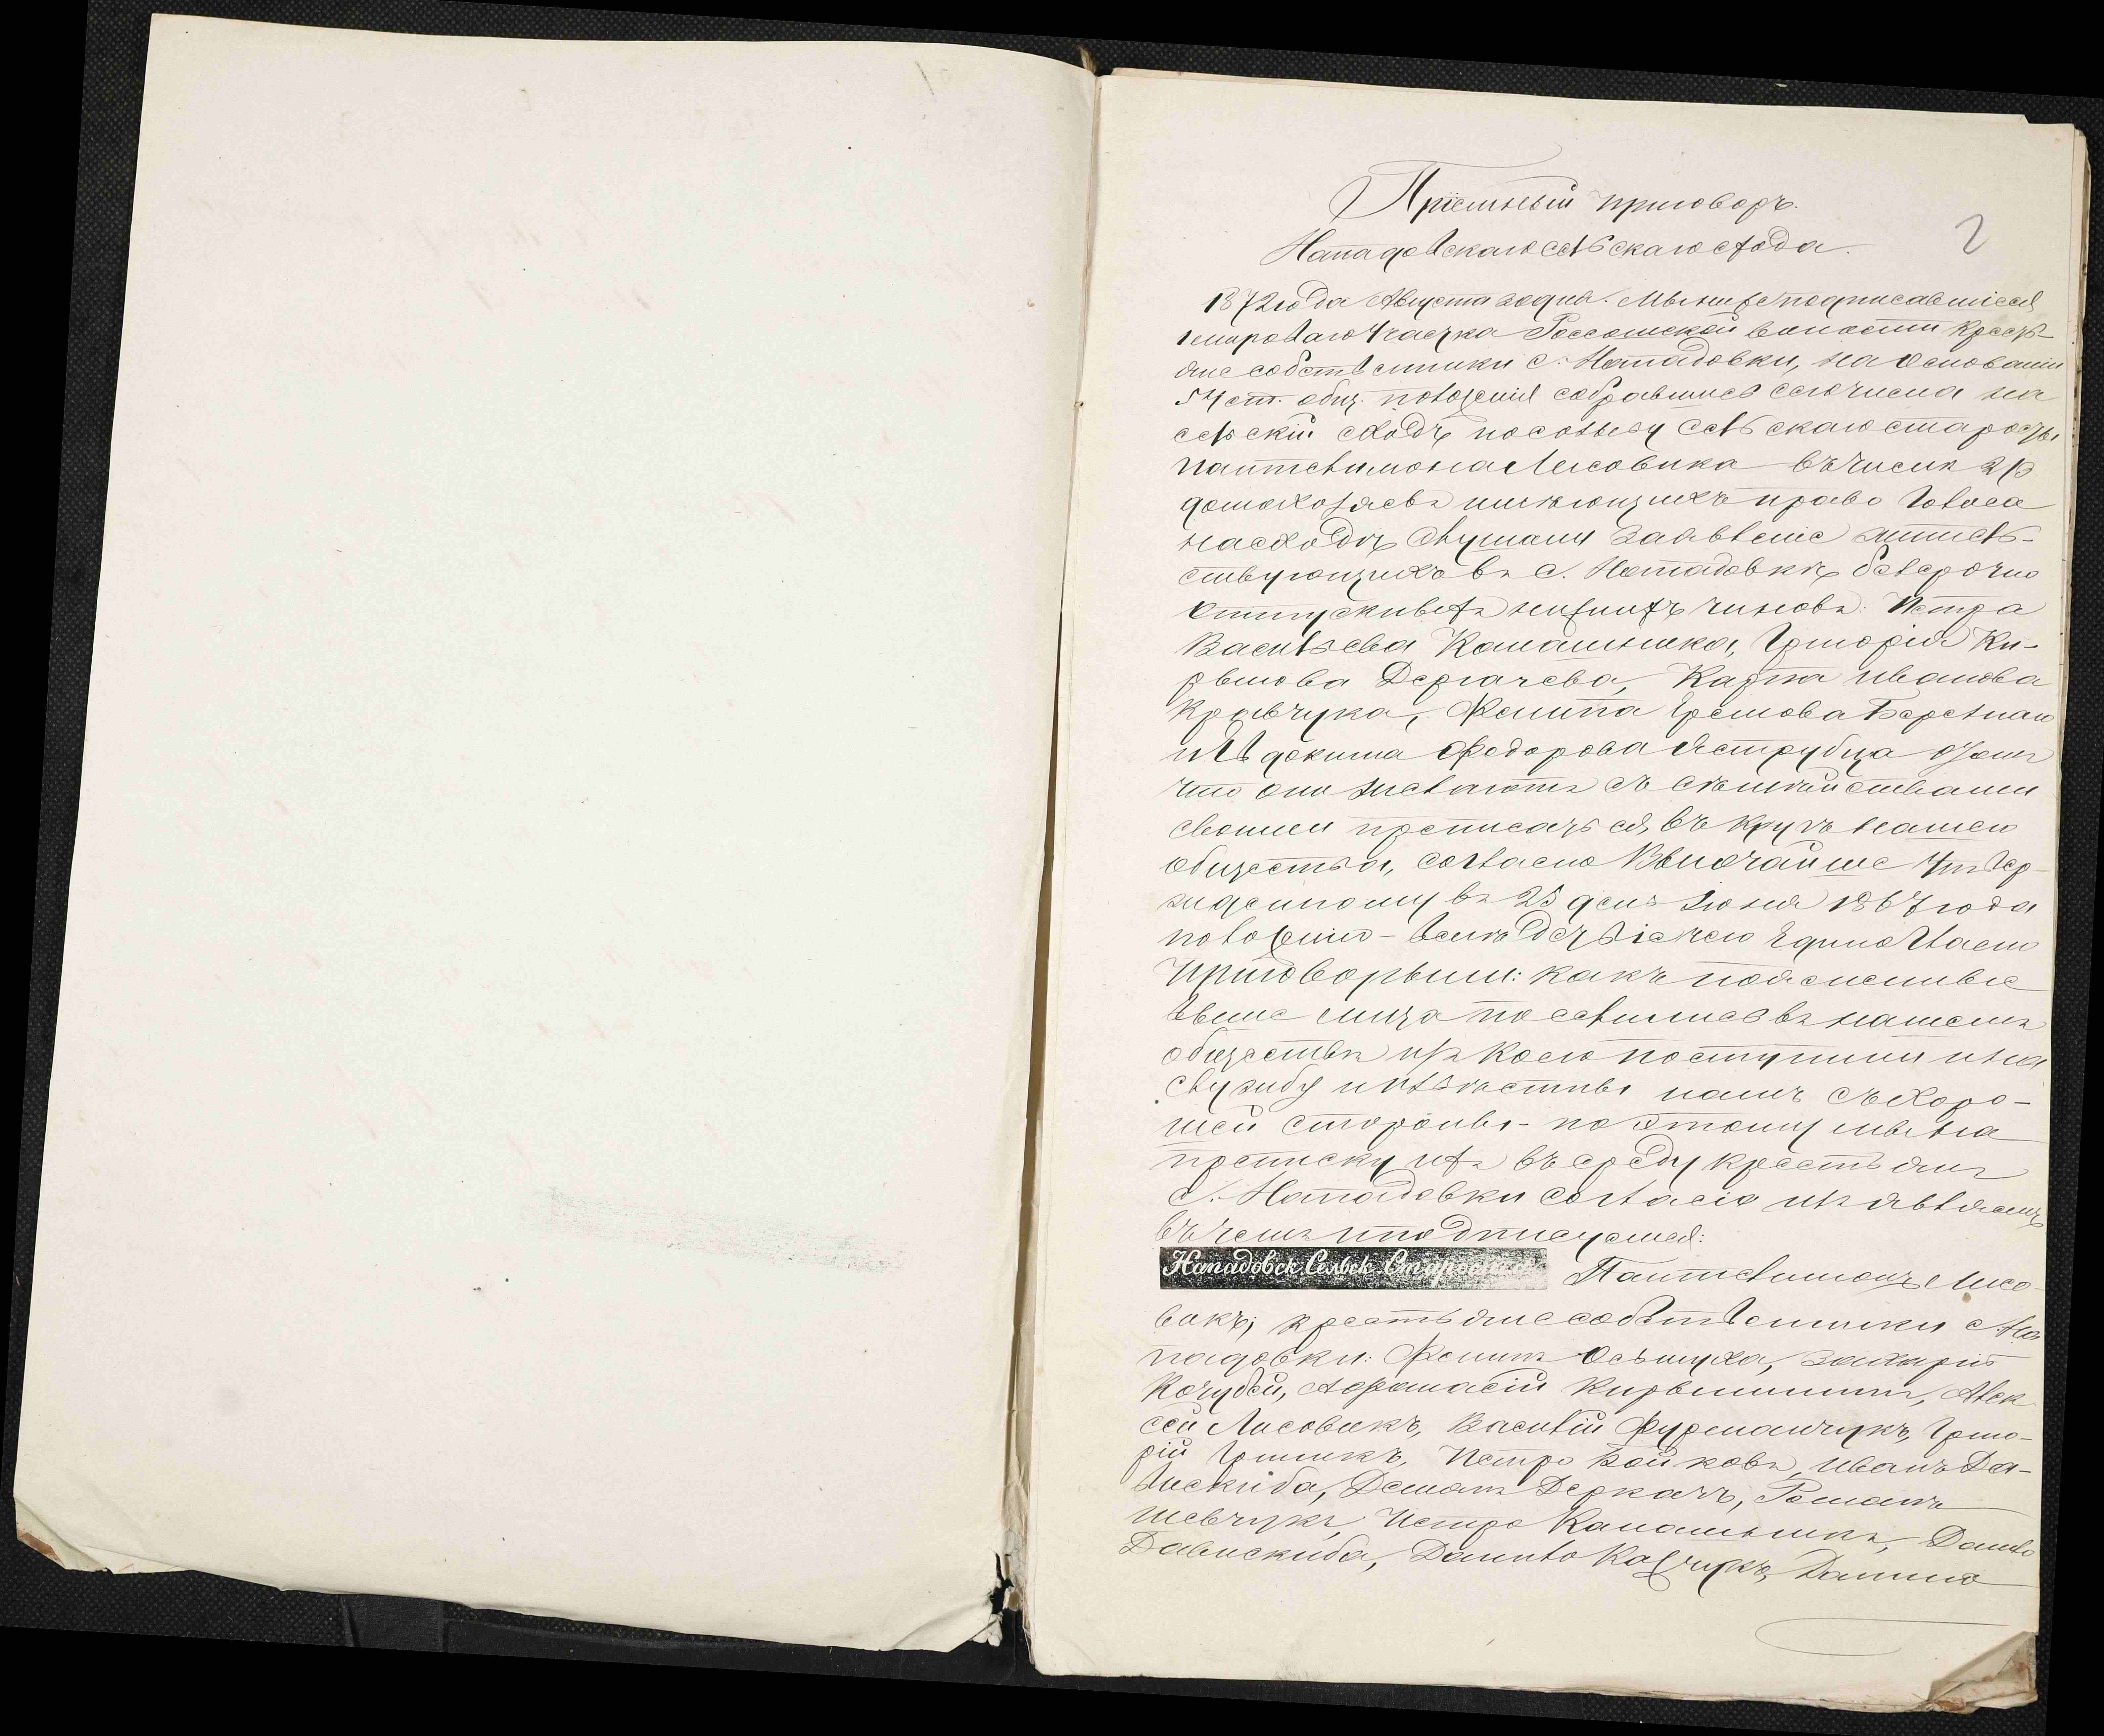 Пріемный приговоръ.
Нападовскаго сельскаго схода.
2
1872 года Августа 20 дня. Мы нижеподписавшіеся
1 мироваго участка Россошской волости кресть-
яне собственники с. Нападовки, на основаніи
54 ст. общ. положенія собравшись сего числа на
сельскій сходъ по созыву сельскаго старосты
Пантелимона Лисовика въ числѣ
домохозяевъ имѣющихъ право голоса
на сходѣ слушали заявленіе житель-
ствующихъ въ с. Нападовкѣ безсрочно
отпускныхъ нижнихъ чиновъ: Петра
Васильева Каналюшка, Григорія Ки-
рылова Дергачева, Карпа Иванова
Кравчука, Филипа Ефимова Березнаго
и Евдокима Федорова Яструбца о томъ
что они желаютъ съ семѣйствами
своими преписаться въ кругъ нашего
общества, согласно Высочайше утвер-
жденному въ 25 день Іюня 1867 года
положенію - вслѣдствіе чего единогласно
Приговорыли: какъ поясненные
выше лица поселились въ нашемъ
обществѣ изъ коего поступили и на
службу и извѣстны намъ съ хоро-
шей стороны - поэтому мы на
преписку ихъ въ среду крестьянъ
с. Нападовки согласіе изъявляемъ
въ чемъ и подписуемся:
Нападовск. Сельск. Староста Пантелимонъ Лисо-
викъ; крестьяне собственники с. На
падовки: Филипъ Осьмуха, Захарій
Кочубей, Афонасій Кирылишинъ, Алек
сей Лисовикъ, Василій Фурманчукъ, Григо-
рій Гришикъ, Петро Войковъ, Иванъ Да-
вискиба, Деманъ Деркачъ, Романъ
Шевчукъ, Петро Каналюшка, Данило
Давискиба, Данило Кавчукъ, Данило